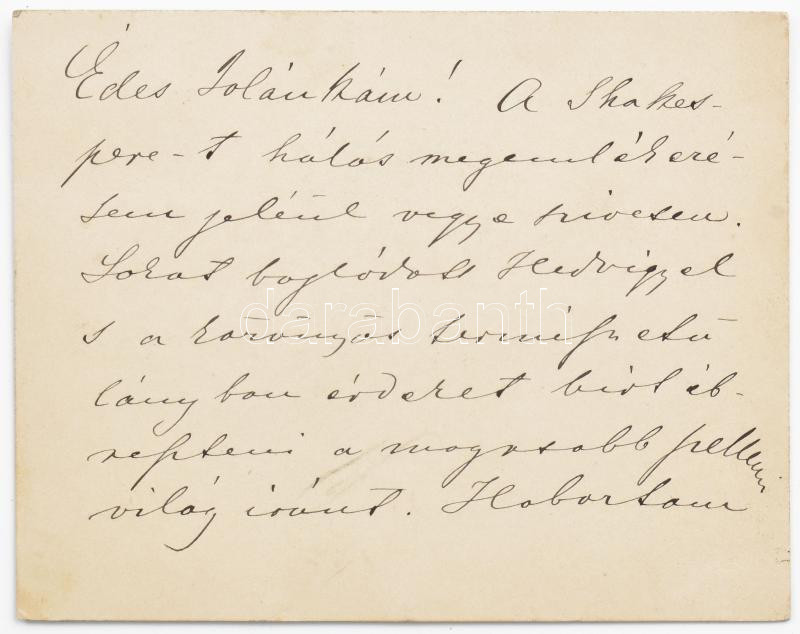 Édes Jolánkám! A Shakes-
pere-t hálás megemlékezé-
sem jeléül vegye szivesen.
Sokat bajlódott Hedviggel
s a korványos természetü
lányban érdeket birt éb-
reszteni a magasabb szellemi
világ iránt. Habortam
darabanth